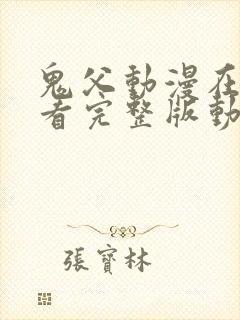 鬼父動漫在
看完整版動
張寶林